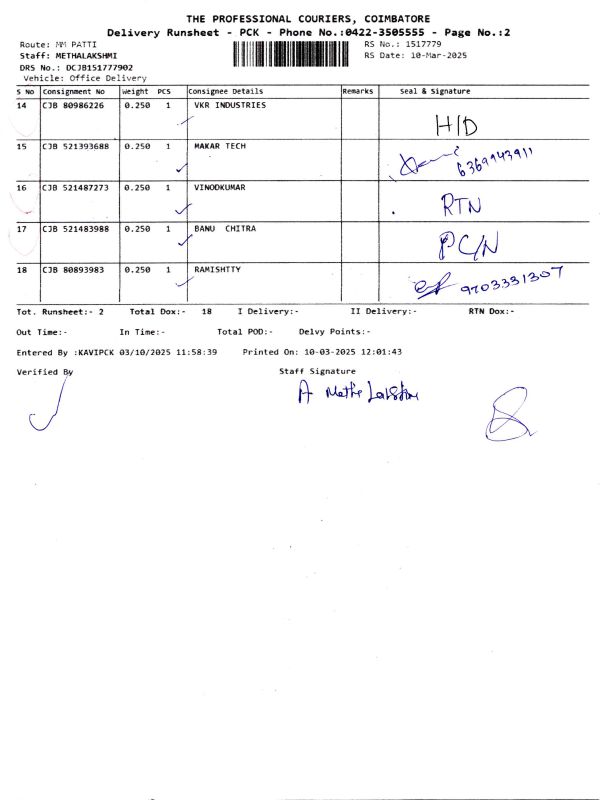 THE PROFESSIONAL COURIERS, COIMBATORE
Delivery Runsheet - PCK - Phone No.:0422-3505555 - Page No.:2
Route: MM PATTI RS No.: 1517779
Staff: METHALAKSHMI RS Date: 10-Mar-2025
DRS No.: DCJB151777902
Vehicle: Office Delivery
S No Consignment No Weight PCS Consignee Details Remarks Seal & Signature
14 CJB 80986226 0.250 1 VKR INDUSTRIES
H/D
15 CJB 521393688 0.250 1 MAKAR TECH
6369943911
16 CJB 521487273 0.250 1 VINODKUMAR
RTN
17 CJB 521483988 0.250 1 BANU CHITRA
PC/N
18 CJB 80893983 0.250 1 RAMISHTTY
9703331307
Tot. Runsheet:- 2 Total Dox:- 18 I Delivery:- II Delivery:- RTN Dox:-
Out Time:- In Time:- Total POD:- Delvy Points:-
Entered By :KAVIPCK 03/10/2025 11:58:39 Printed On: 10-03-2025 12:01:43
Verified By Staff Signature